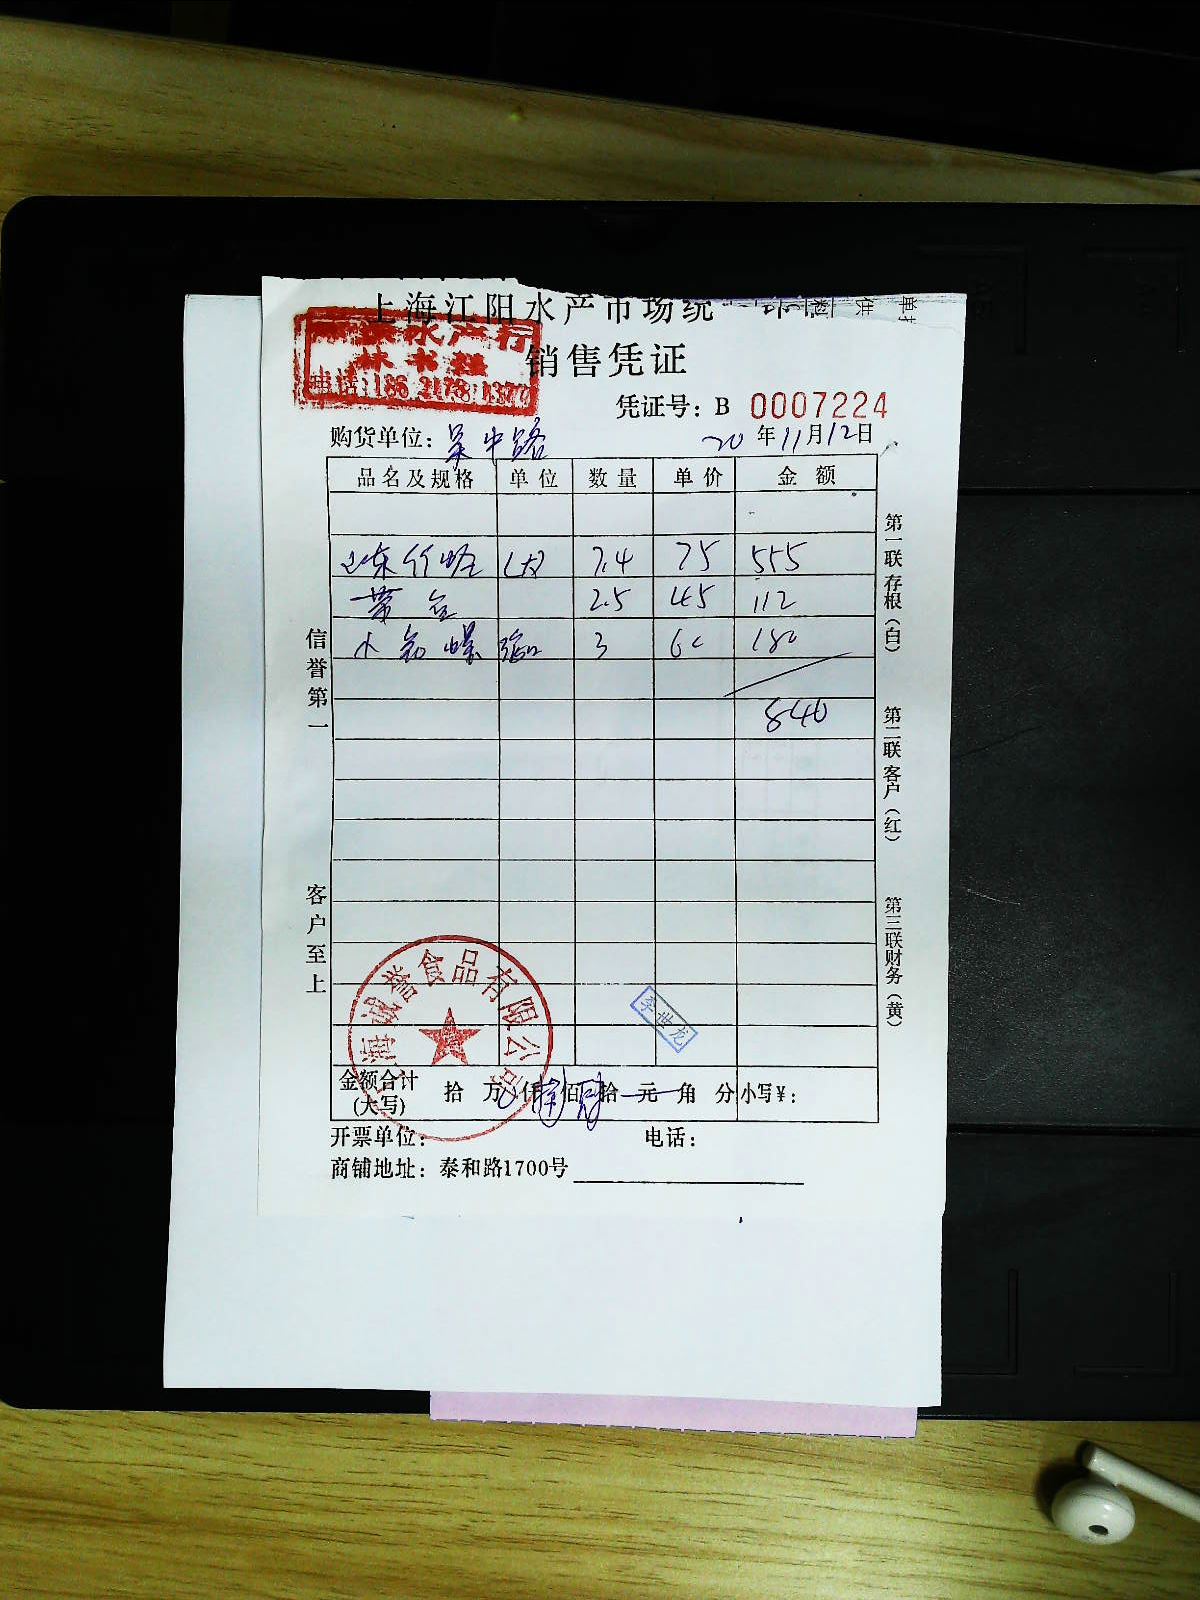 上海江阳水产市场统一
水产行
林书
电话:186 2178 1377
销售凭证
凭证号: B 0007224
购货单位: 吴中路 20年11月12日
品名及规格 单位 数量 单价 金额
冻竹蛏 (大) 7.4 75 555
带鱼 2.5 45 112
小鲍螺 3 60 180
840
信誉第一
客户至上
第一联存根(白)
第二联客户(红)
第三联财务(黄)
上海诚耆食品有限公司
李世龙
金额合计(大写) 拾 万 仟 捌佰 肆拾 元 角 分 小写¥:
开票单位: 电话:
商铺地址: 泰和路1700号